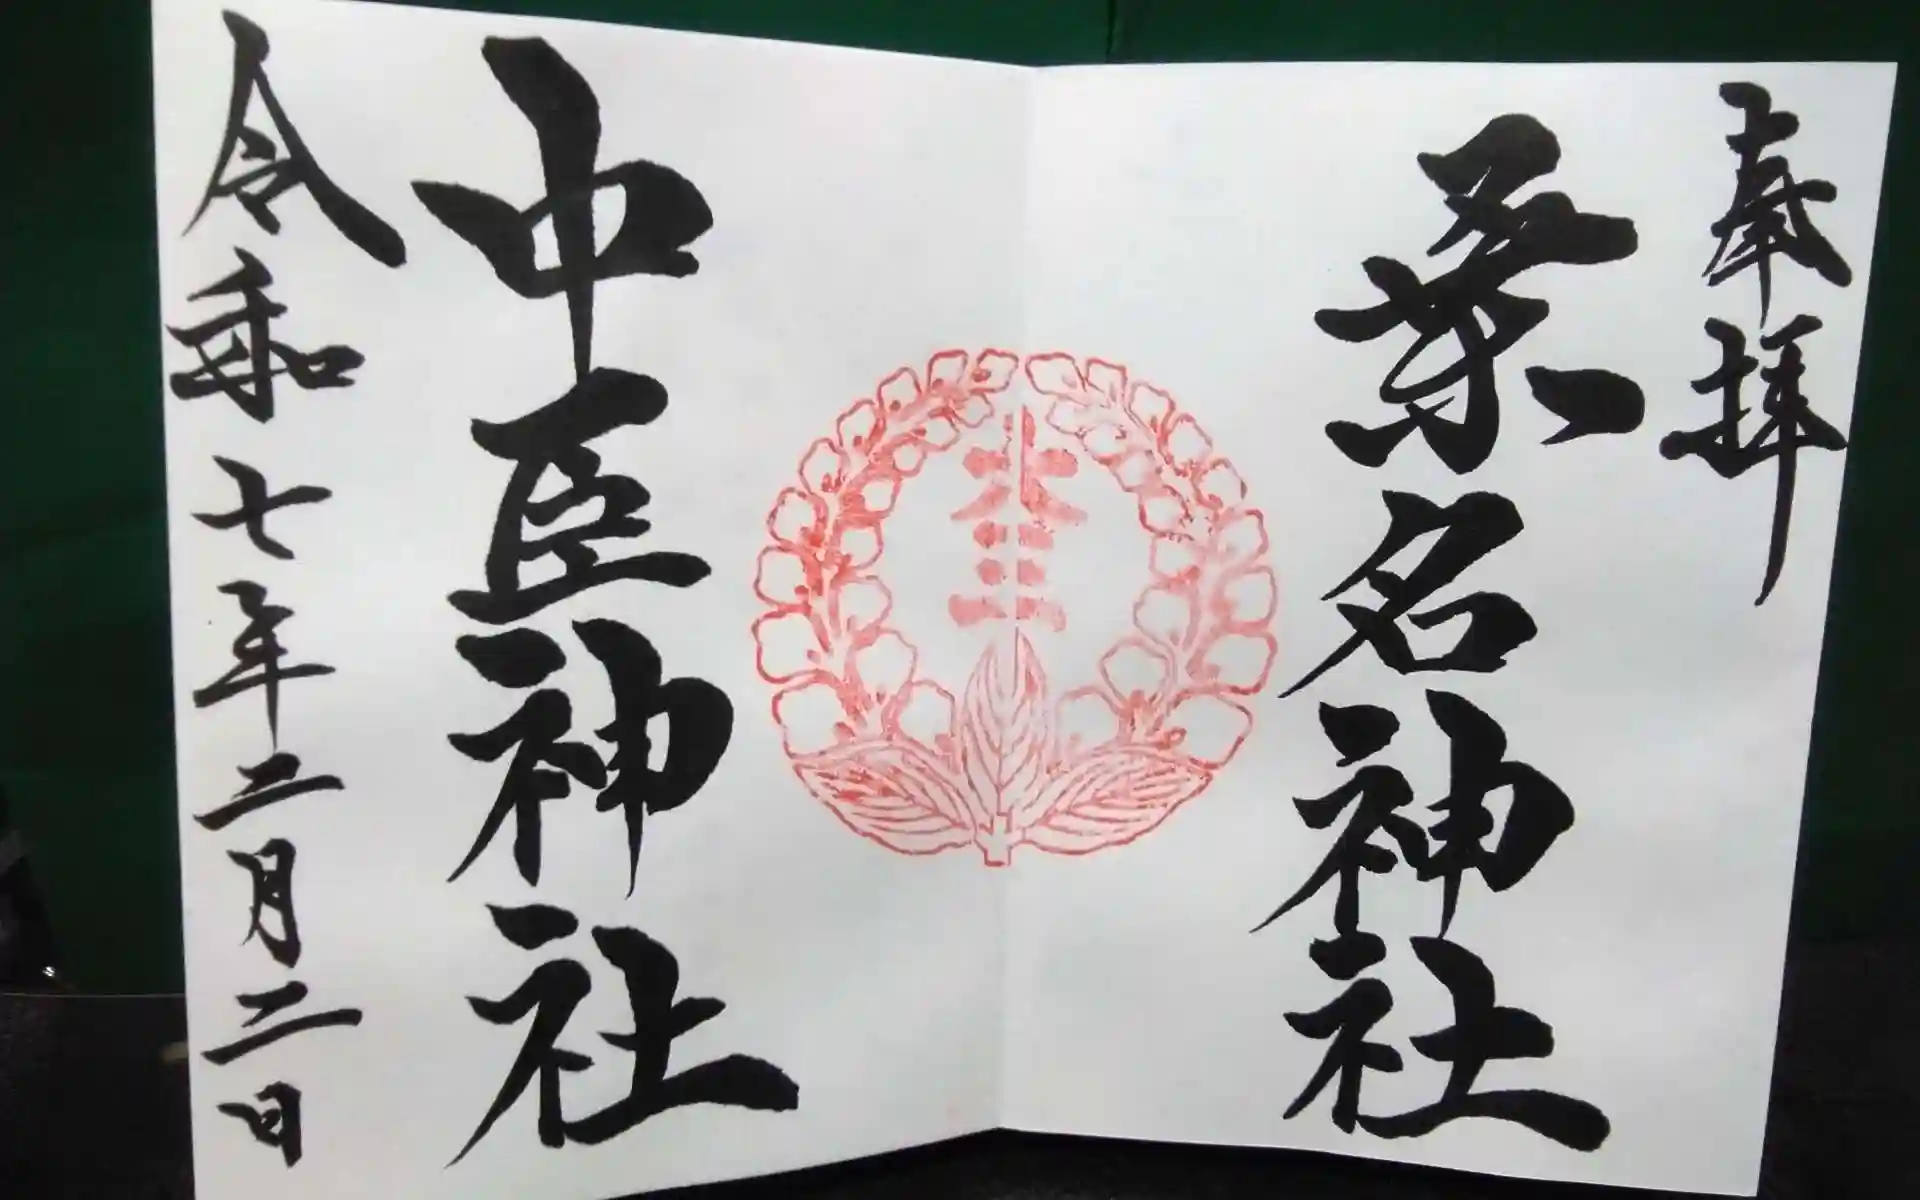 奉拝
桑名神社
本三
中臣神社
令和七年二月二日